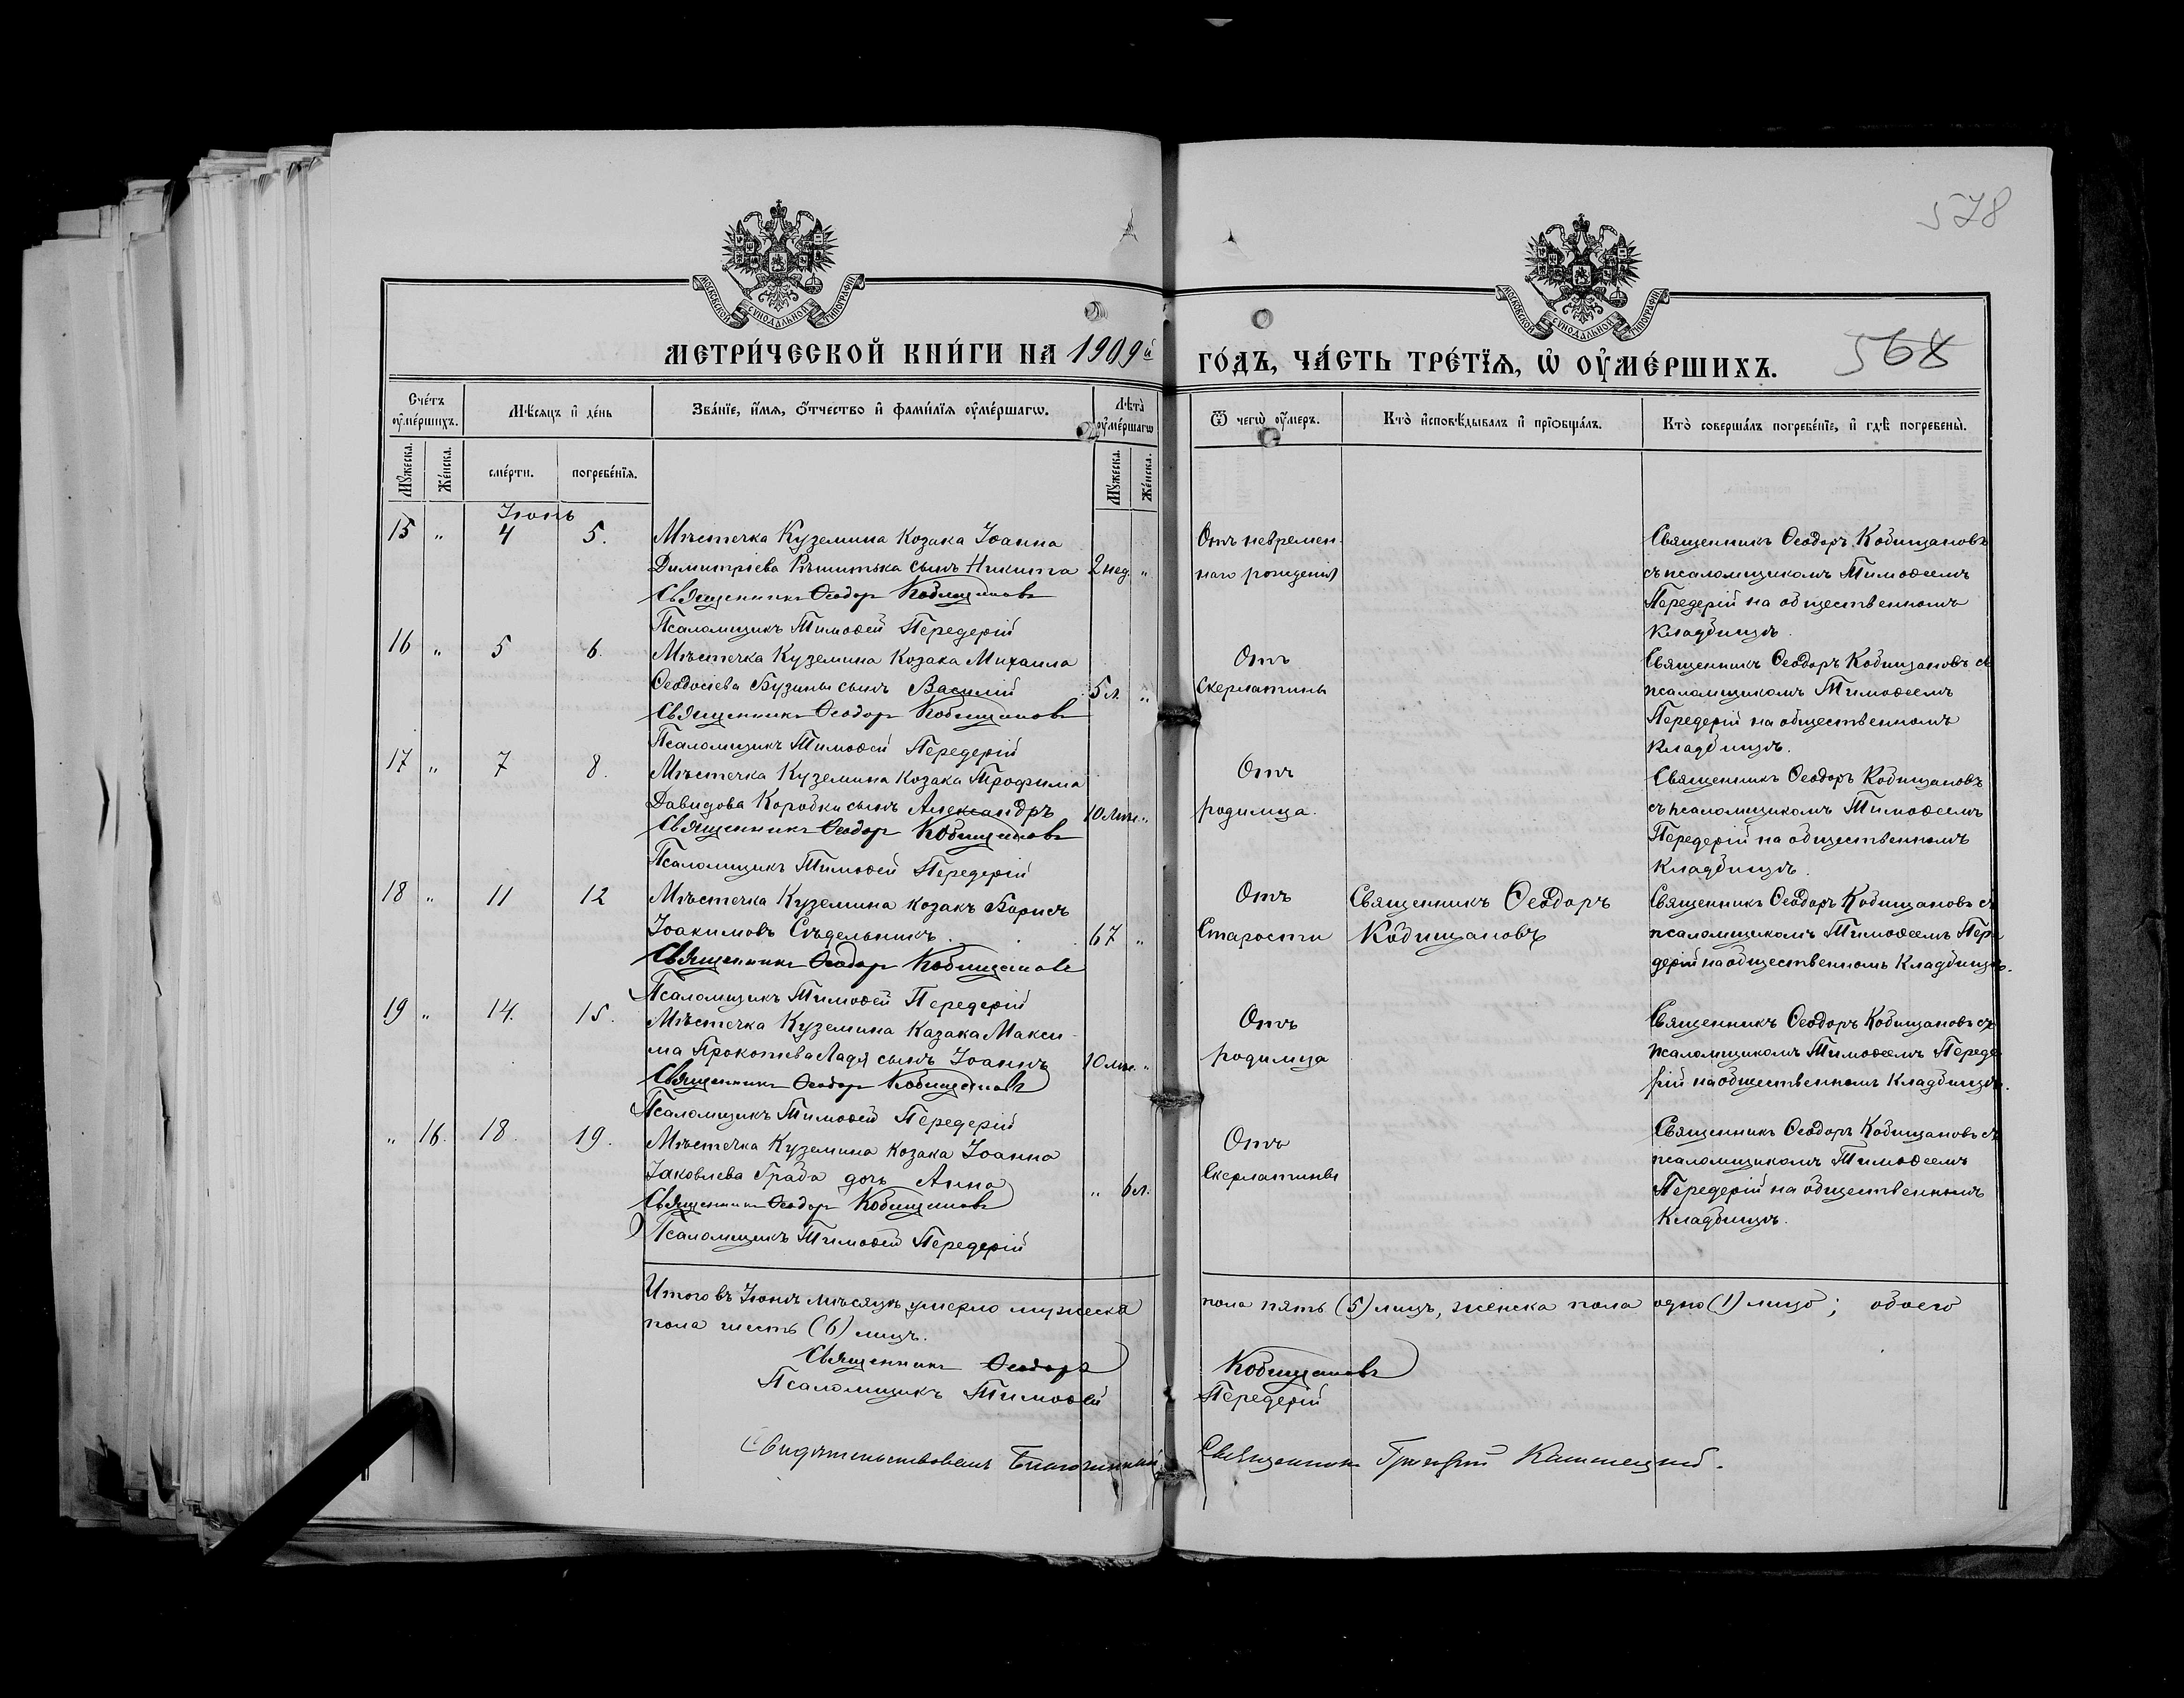 578
МОСКОВСКОЙ СѴНОДАЛЬНОЙ ТИПОГРАФІИ
МОСКОВСКОЙ СѴНОДАЛЬНОЙ ТИПОГРАФІИ
МЕТРИ́ЧЕСКОЙ КНИ́ГИ НА 1909й ГО́ДЪ, ЧА́СТЬ ТРЕ́ТЇѦ, Ѽ ОУ҆МЕ́РШИХЪ.
568
Сче́тъ оу҆ме́ршихъ.
Мѣ́сяцъ и҆ де́нь
Зва́нїе, и҆́мѧ, ѻ҆́тчество и҆ фами́лїѧ оу҆ме́ршагѡ.
Лѣ́та оу҆ме́ршагѡ
Ѿ чегѡ̀ оу҆́меръ.
Кто̀ и҆сповѣ́дывалъ и҆ прїѻбща́лъ.
Кто̀ соверша́лъ погребе́нїе, и҆ гдѣ̀ погребены̀.
Му́жеска. Же́нска. сме́рти. погребе́нїѧ. Му́жеска. Же́нска.
Іюнь
15 " 4 5. Мѣстечка Куземина Козака Іоанна
Димитріева сынъ Никита 2 нед. "
Священникъ Ѳеодоръ Кобищановъ
Псаломщикъ Тимоѳей Передерій
Отъ невремен-
наго рожденія
Священникъ Ѳеодоръ Кобищановъ
съ псаломщикомъ Тимоѳеемъ
Передерій на общественномъ
Кладбищѣ.
16 " 5 6. Мѣстечка Куземина Козака Михаила
Ѳеодосіева Бузины сынъ Василій 5 л. "
Священникъ Ѳеодоръ Кобищановъ
Псаломщикъ Тимоѳей Передерій
Отъ
Скерлатины
Священникъ Ѳеодоръ Кобищановъ съ
псаломщикомъ Тимоѳеемъ
Передерій на общественномъ
Кладбищѣ.
17 " 7 8. Мѣстечка Куземина Козака Трофима
Давидова Коробки сынъ Александръ 10 мѣс. "
Священникъ Ѳеодоръ Кобищановъ
Псаломщикъ Тимоѳей Передерій
Отъ
родимца.
Священникъ Ѳеодоръ Кобищановъ
съ псаломщикомъ Тимоѳеемъ
Передерій на общественномъ
Кладбищѣ.
18 " 11 12 Мѣстечка Куземина козакъ Борисъ
Іоакимовъ Сѣдельникъ 67 "
Священникъ Ѳеодоръ Кобищановъ
Псаломщикъ Тимоѳей Передерій
Отъ
Старости
Священникъ Ѳеодоръ
Кобищановъ
Священникъ Ѳеодоръ Кобищановъ съ
псаломщикомъ Тимоѳеемъ Пере
дерій на общественномъ Кладбищѣ.
19 " 14. 15. Мѣстечка Куземина Казака Макси-
ма Прокопіева Ладя сынъ Іоаннъ 10 мѣс. "
Священникъ Ѳеодоръ Кобищановъ
Псаломщикъ Тимоѳей Передерій
Отъ
родимца
Священникъ Ѳеодоръ Кобищановъ съ
псаломщикомъ Тимоѳеемъ Переде
рій на общественномъ Кладбищѣ.
" 16. 18. 19. Мѣстечка Куземина Козака Іоанна
Іаковлева Граба дочь Анна " 6 л.
Священникъ Ѳеодоръ Кобищановъ
Псаломщикъ Тимоѳей Передерій
Отъ
Скерлатины
Священникъ Ѳеодоръ Кобищановъ съ
псаломщикомъ Тимоѳеемъ
Передерій на общественномъ
Кладбищѣ.
Итого въ Іюнѣ мѣсяцѣ умерло мужеска пола пять (5) лицъ, женска пола одно (1) лицо; обоего
пола шесть (6) лицъ.
Священникъ Ѳеодоръ Кобищановъ
Псаломщикъ Тимоѳей Передерій
Свидѣтельствовалъ Благочинный Священникъ Григорій